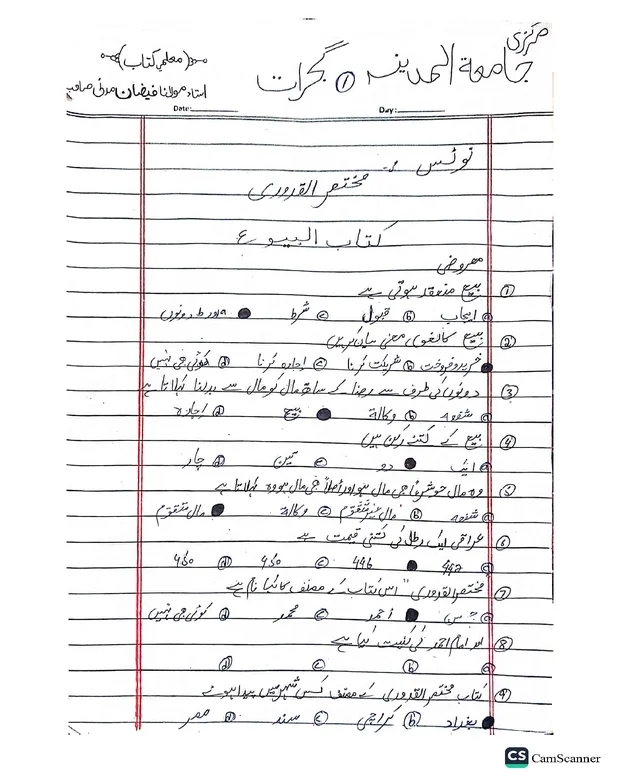 مرکزی
جامعۃ المدینہ ① گجرات
(معلمِ کتاب)
استاد مولانا فیضان مدنی صاحب
Date: Day:
نوٹس
مختصر القدوری
کتاب البیوع
معروضی
① بیع منعقد ہوتی ہے
ⓐ ایجاب ⓑ قبول ⓒ شرط ● a اور b دونوں
② بیع کا لغوی معنی بیان کریں
● خرید و فروخت ⓑ شرکت کرنا ⓒ اجارہ کرنا ⓓ کوئی بھی نہیں
③ دونوں کی طرف سے رضا کے ساتھ مال کو مال سے بدلنا کہلاتا ہے
ⓐ شفعہ ⓑ وکالۃ ● بیع ⓓ اجارہ
④ بیع کے کتنے رکن ہیں
ⓐ ایک ● دو ⓒ تین ⓓ چار
⑤ وہ مال جو شرعاً بھی مال ہو اور اصلاً بھی مال ہو وہ کہلاتا ہے
ⓐ شفعہ ⓑ مال غیر متقوم ⓒ وکالۃ ● مال متقوم
⑥ عراقی ایک رطل کی کتنی قیمت ہے
ⓐ ● ⓒ ⓓ
⑦ مختصر القدوری" اس کتاب کے مصنف کا کیا نام ہے
ⓐ حسن ● احمد ⓒ محمد ⓓ کوئی بھی نہیں
⑧ امام احمد کی کنیت کیا ہے
ⓐ ⓑ ⓒ ⓓ
⑨ کتاب مختصر القدوری کے مصنف کس شہر میں پیدا ہوئے
● بغداد ⓑ کراچی ⓒ سند ⓓ مصر
CS CamScanner